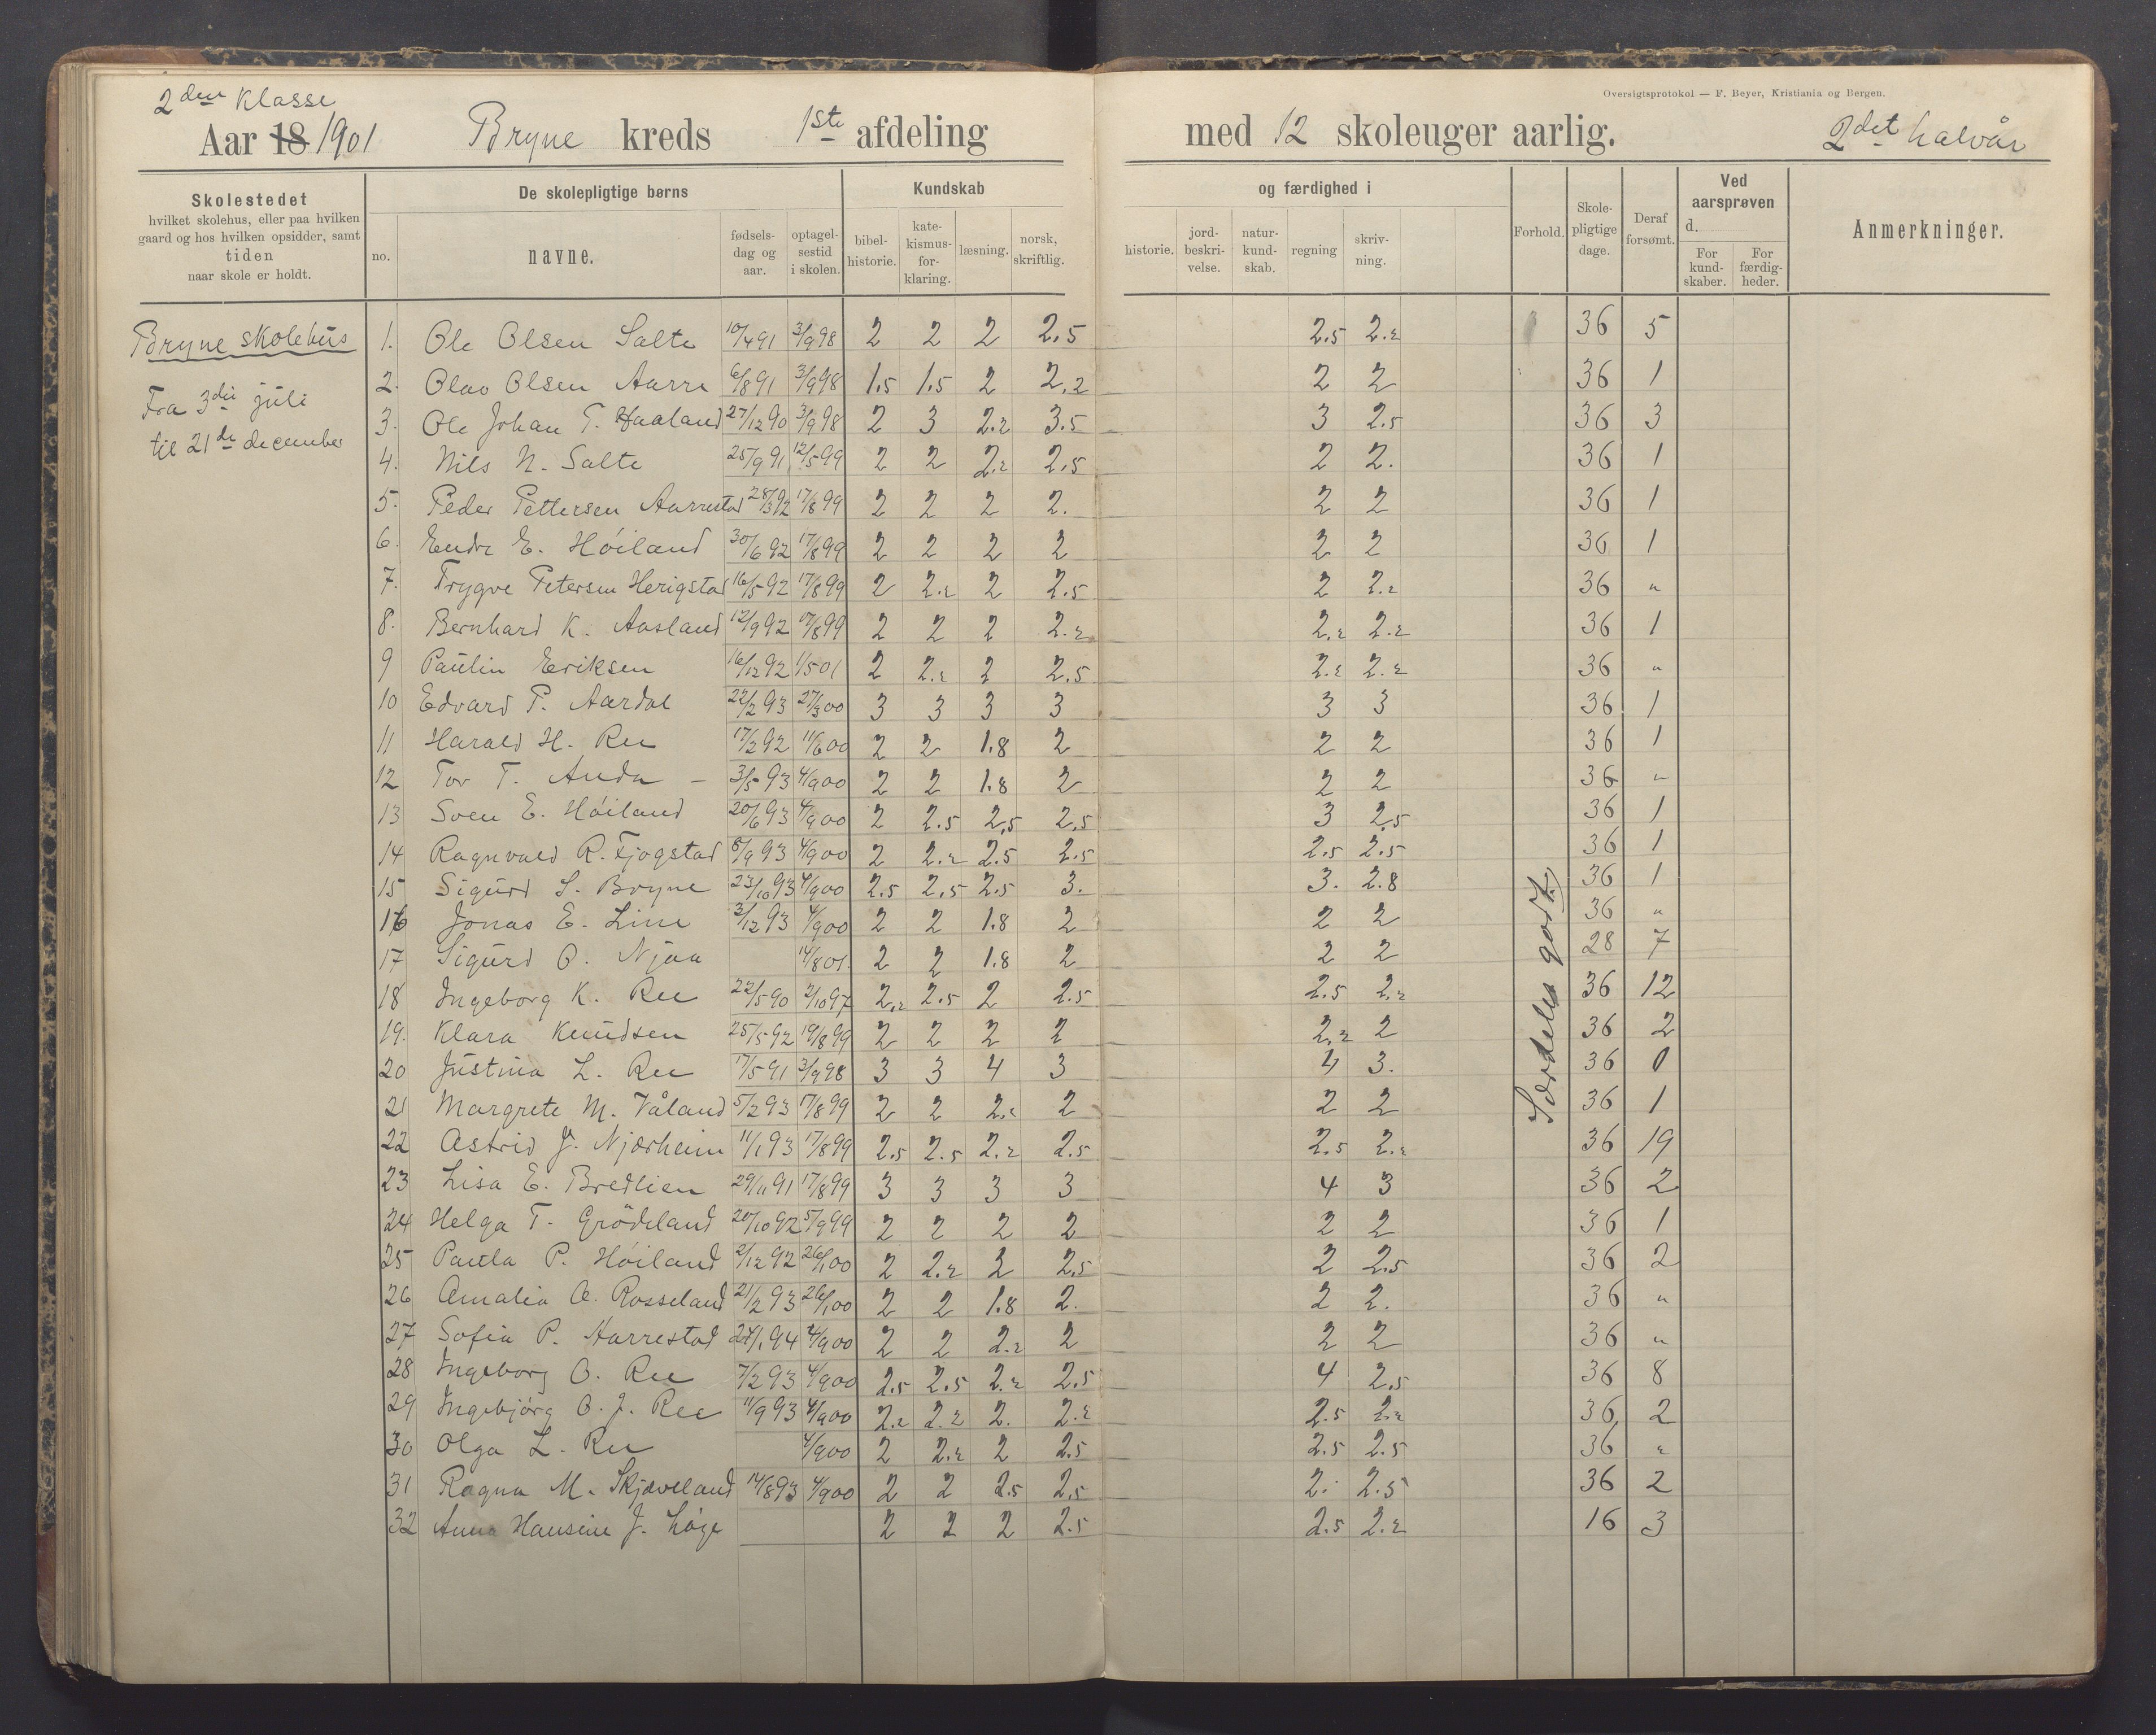 Oversigtsprotokol — F. Beyer, Kristiania og Bergen.
2den Klasse
Aar 18 1901 Bryne kreds 1ste afdeling med 12 skoleuger aarlig. 2det halvår
Skolestedet
hvilket skolehus, eller paa hvilken
gaard og hos hvilken opsidder, samt
tiden
naar skole er holdt.
De skolepligtige børns
no. navne. fødsels-dag og aar. optagel-sestid i skolen.
Kundskab og færdighed i
bibel-historie. kate-kismus-for-klaring. læsning. norsk, skriftlig. historie. jord-beskri-velse. natur-kund-skab. regning skriv-ning.
Forhold. Skole-pligtige dage. Deraf forsømt.
Ved aarsprøven d.
For kund-skaber. For færdig-heder.
Anmerkninger.
Bryne skolehus
Fra 3die juli
til 21de december
1. Ole Olsen Salte 10/4 91 3/9 98 2 2 2 2.5 2.5 2.2 36 5
2. Olav Olsen Aarre 6/8 91 3/9 98 1.5 1.5 2 2.2 2 2 36 1
3. Ole Johan T. Haaland 27/12 90 3/9 98 2 3 2.2 3.5 3 2.5 36 3
4. Nils N. Salte 25/9 91 12/5 99 2 2 2.2 2.5 2 2. 36 1
5. Peder Pettersen Aarrestad 28/3 92 17/8 99 2 2 2 2. 2 2 36 1
6. Endre E. Höiland 30/6 92 17/8 99 2 2 2 2 2 2 36 1
7. Trygve Petersen Herigstad 16/5 92 17/8 99 2 2.2 2 2.5 2 2.2 36 "
8. Bernhard K. Aasland 12/9 92 17/8 99 2 2 2 2.2 2.2 2.2 36 1
9 Paulin Eeriksen 16/12 92 1/5 01 2 2.2 2 2.5 2.2 2.2 36 "
10 Edvard P. Aardal 22/2 93 27/3 00 3 3 3 3 3 3 36 1
11 Harald H. Ree 17/2 92 11/6 00 2 2 1.8 2 2 2 36 1
12 Tor T. Anda – 3/5 93 4/9 00 2 2 1.8 2 2 2 36 "
13 Sven E. Höiland 20/6 93 4/9 00 2 2.5 2.5 2.5 3 2.5 36 1
14 Ragnvald R. Fjogstad 8/9 93 4/9 00 2 2.2 2.5 2.5 2.5 2.5 36 1
15 Sigurd S. Bryne 23/10 93 4/9 00 2.5 2.5 2.5 3. 3. 2.8 36 1
16 Jonas E. Line 3/12 93 4/9 00 2 2 1.8 2 2 2 36 "
17 Sigurd O. Njaa 14/8 01. 2 2 1.8 2 2 2 28 7
18 Ingeborg K. Ree 22/5 90 2/10 97 2.2 2.5 2 2.5 2.5 2.2 36 12
19. Klara Knudsen 25/5 92 19/8 99 2 2 2 2 2.2 2 36 2
20 Justina L. Ree 17/5 91 3/9 98 3 3 4 3 4 3. 36 0
21 Margrete M. Våland 5/2 93 17/8 99 2 2 2.2 2 2 2 36 1
22 Astrid J. Njærheim 11/1 93 17/8 99 2.5 2.5 2.2 2.5 2.5 2.2 36 19
23 Lisa E. Bredlien 29/11 91 17/8 99 3 3 3 3 4 3 36 2
24 Helga T. Grödeland 20/10 92 5/9 99 2 2 2 2 2 2 36 1
25 Paula P. Höiland 2/12 92 26/1 00 2 2.2 2 2.5 2 2.5 36 2
26 Amalia A. Rosseland 21/2 93 26/1 00 2 2 1.8 2. 2 2. 36 "
27 Sofia P. Aarrestad 24/1 94 4/9 00 2 2 2.2 2 2 2 36 "
28 Ingeborg O. Ree 7/2 93 4/9 00 2.5 2.5 2.2 2.5 4 2.5 36 8
29 Ingebjörg O. J. Ree 11/9 93 4/9 00 2.2 2.2 2. 2.2 2.5 2.2 36 2
30 Olga L. Ree 4/9 00 2 2.2 2 2.5 2.5 2.5 36 "
31 Ragna M. Skjæveland 14/8 93 4/9 00 2 2 2.5 2.5 2. 2.5 36 2
32 Anna Hansine J. Löge 2 2 2 2.5 2.5 2.2 16 3
Særdeles godt.